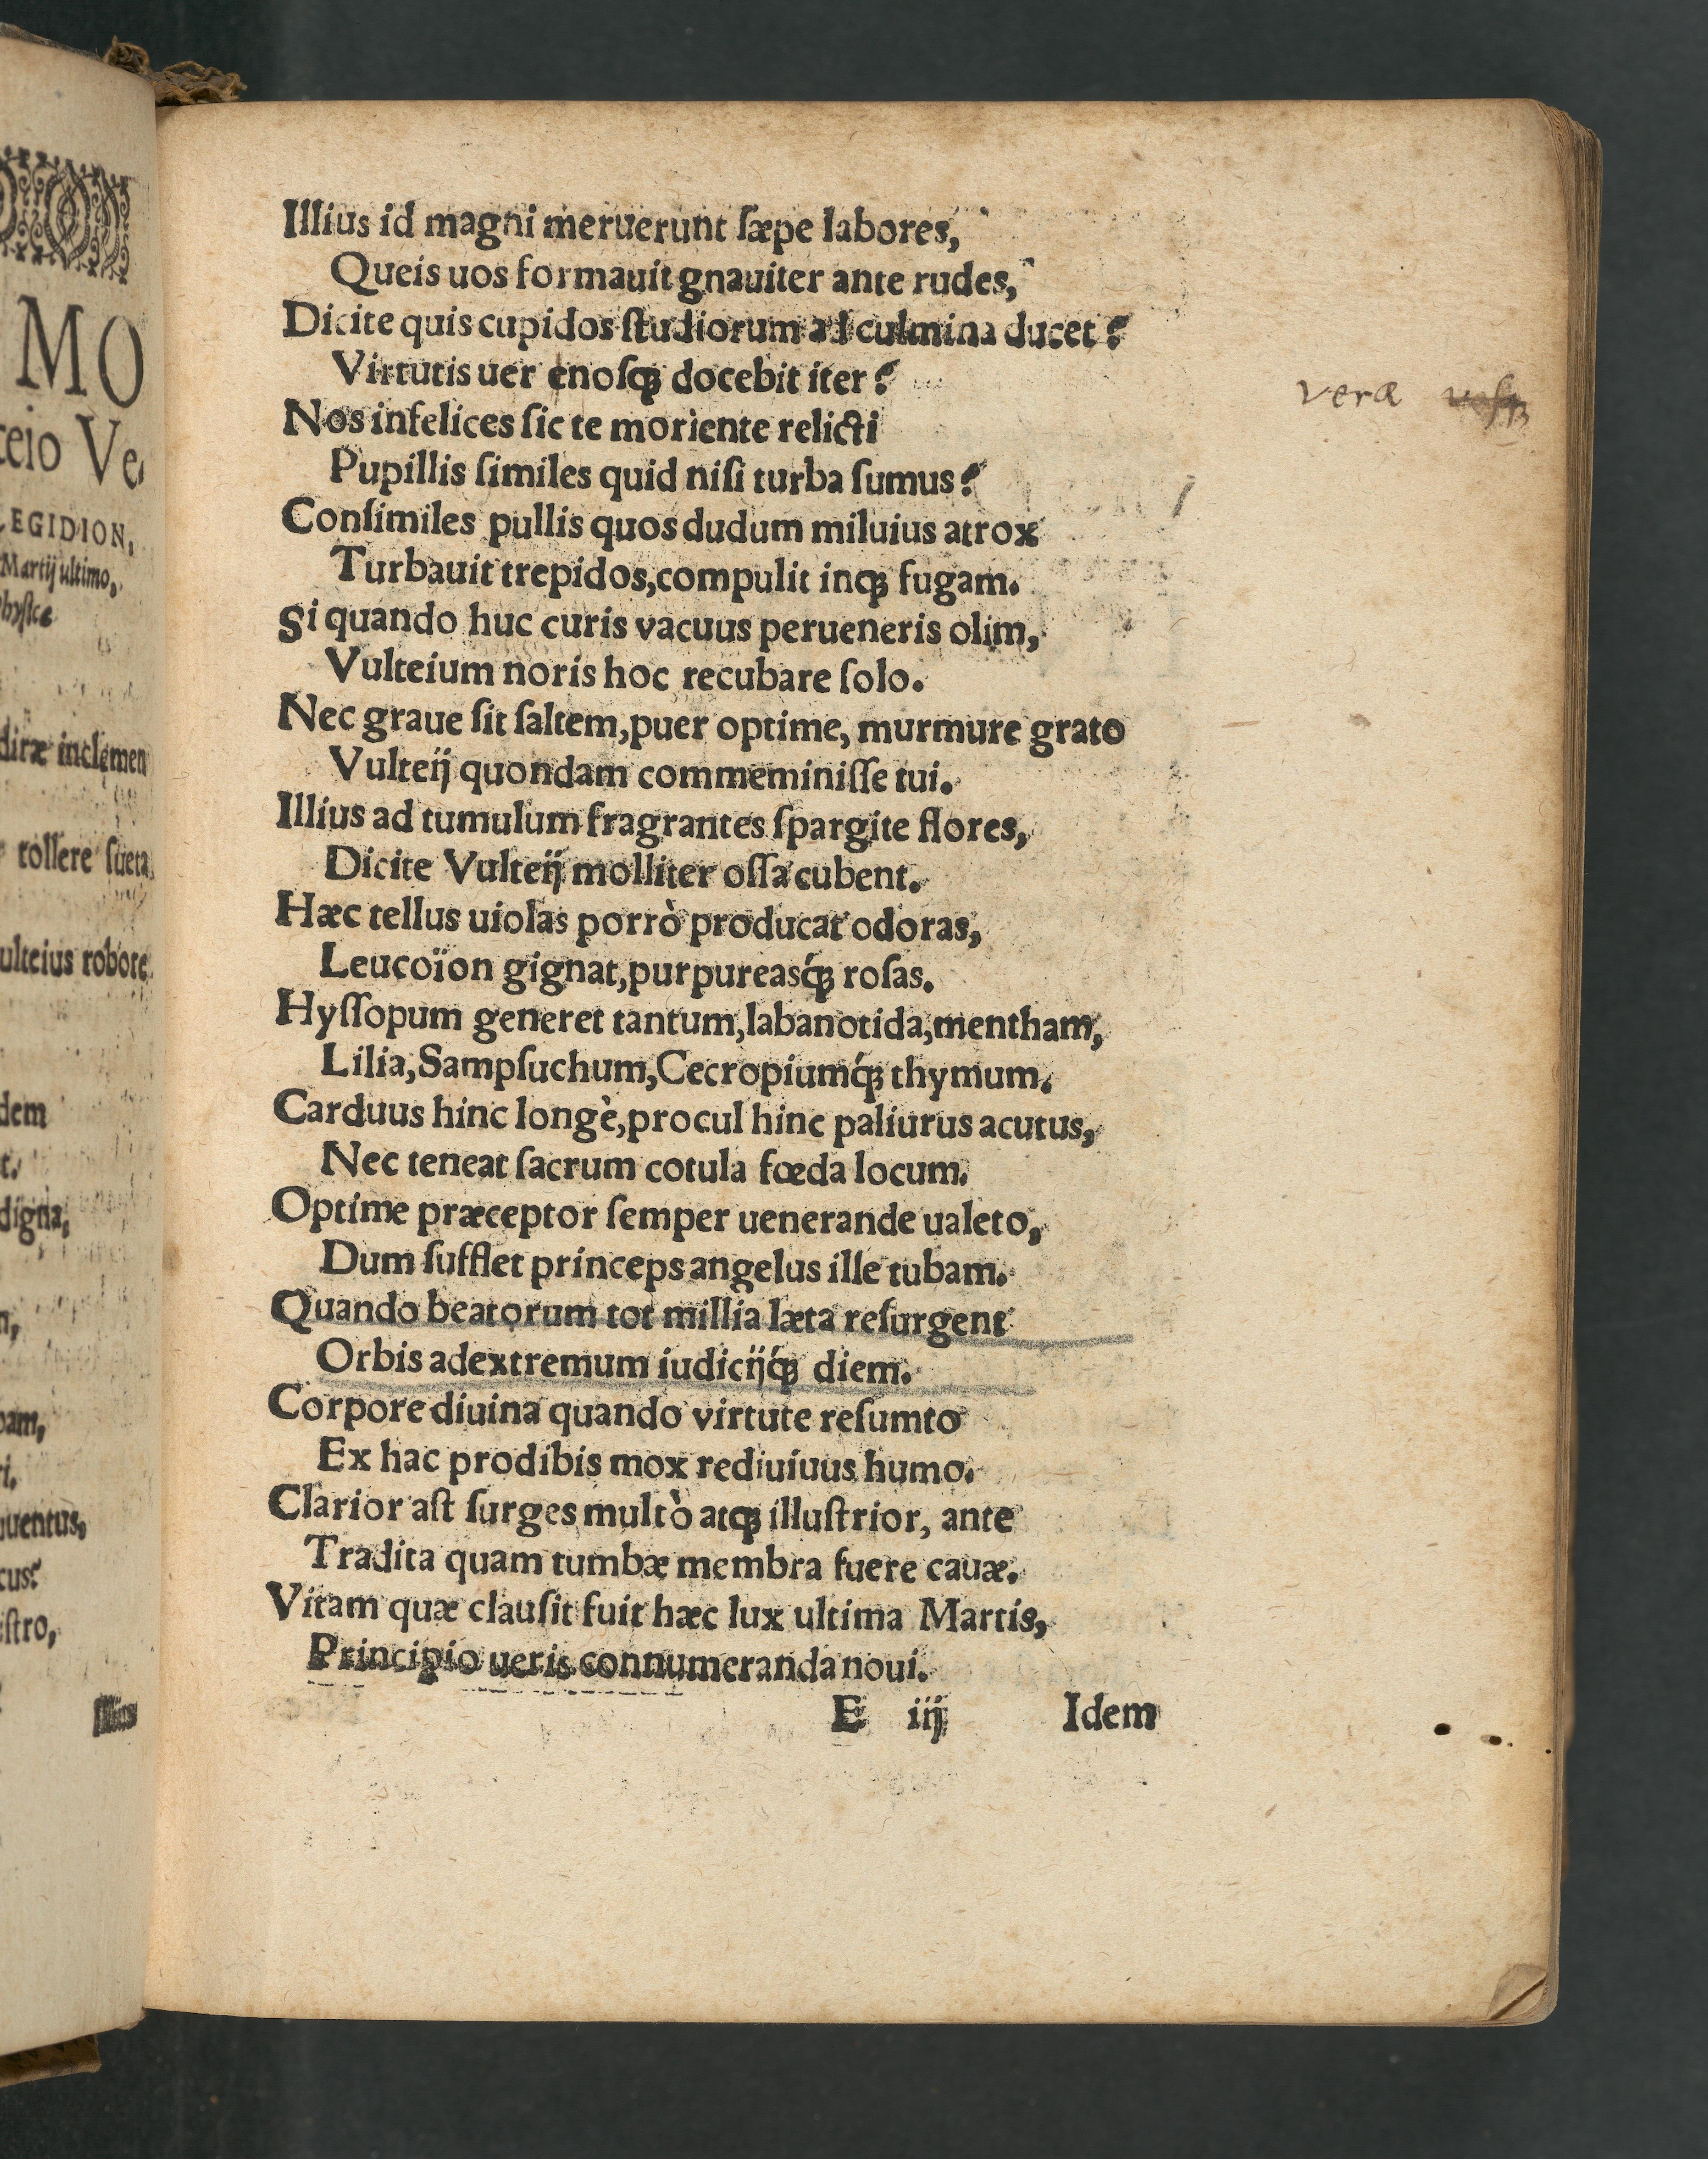 MO
teio Ve
EGIDION,
Martij ultimo,
diræ inclemen
tollere ſueta
ulteius robore
dem
digna,
Illius
Illius id magni meruerunt ſæpe labores,
Queis uos formauit gnauiter ante rudes,
Dicite quis cupidos ſtudiorum ad culmina ducet?
Virtutis uer enoſq́ꝫ docebit iter?
vera
Nos infelices ſic te moriente relicti
Pupillis ſimiles quid niſi turba ſumus?
Conſimiles pullis quos dudum miluius atrox
Turbauit trepidos, compulit inqꝫ fugam.
Si quando huc curis vacuus perueneris olim,
Vulteium noris hoc recubare ſolo.
Nec graue ſit ſaltem, puer optime, murmure grato
Vulteij quondam commeminiſſe tui.
Illius ad tumulum fragrantes ſpargite flores,
Dicite Vulteij molliter oſſa cubent.
Hæc tellus uiolas porrò producat odoras,
Leucoïon gignat, purpureasq́ꝫ roſas.
Hyſſopum generet tantum, labanotida, mentham,
Lilia, Sampſuchum, Cecropiumq́ꝫ thymum.
Carduus hinc longè, procul hinc paliurus acutus,
Nec teneat ſacrum cotula fœda locum.
Optime præceptor ſemper uenerande ualeto,
Dum ſufflet princeps angelus ille tubam.
Quando beatorum tot millia læta reſurgent
Orbis ad extremum iudicijq́ꝫ diem.
Corpore diuina quando virtute reſumto
Ex hac prodibis mox rediuiuus humo.
Clarior aſt ſurges multò atqꝫ illuſtrior, ante
Tradita quam tumbæ membra fuere cauæ.
Vitam quæ clauſit fuit hæc lux ultima Martis,
Principio ueris connumeranda noui.
E iij Idem